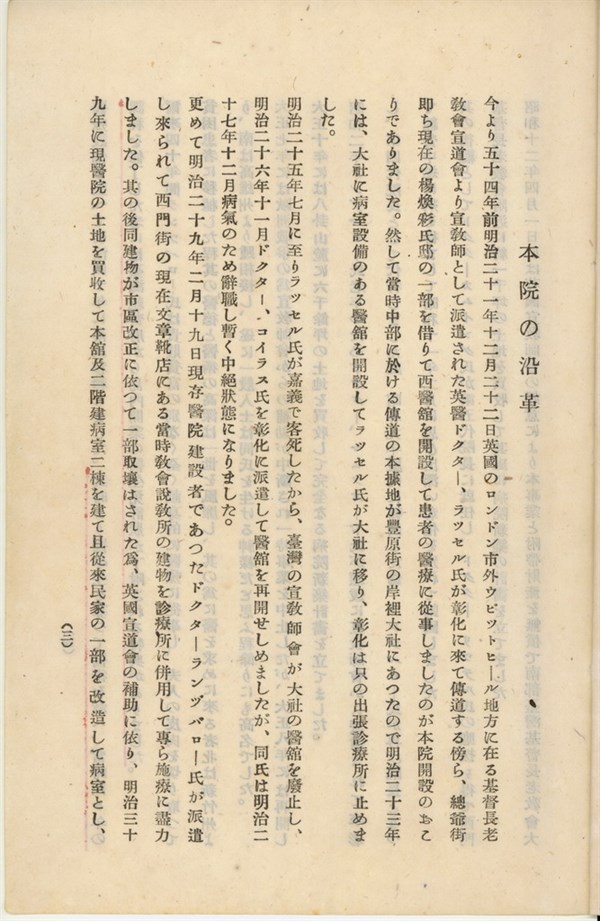 本院の沿革
今より五十四年前明治二十一年十二月二十二日英國のロンドン市外ウビツトヒール地方に在る基督長老
敎會宣道會より宣敎師として派遣された英醫ドクター、ラツセル氏が彰化に來て傳道する傍ら、總爺街
卽ち現在の楊煥彩氏邸の一部を借りて西醫舘を開設して患者の醫療に從事しましたのが本院開設のおこ
りでありました。然して當時中部に於ける傳道の本據地が豐原街の岸裡大社にあつたので明治二十三年
には、大社に病室設備のある醫舘を開設してラツセル氏が大社に移り、彰化は只の出張診療所に止めま
した。
明治二十五年七月に至りラツセル氏が嘉義で客死したから、臺灣の宣敎師會が大社の醫舘を廢止し、
明治二十六年十一月ドクター、コイラス氏を彰化に派遣して醫舘を再開せしめましたが、同氏は明治二
十七年十二月病氣のため辭職し暫く中絕狀態になりました。
更めて明治二十九年二月十九日現存醫院建設者であつたドクターランヅバロー氏が派遣
し來られて西門街の現在文章靴店にある當時敎會說敎所の建物を診療所に併用して專ら施療に盡力
しました。其の後同建物が市區改正に依つて一部取壞はされた爲、英國宣道會の補助に依り、明治三十
九年に現醫院の土地を買收して本舘及二階建病室二棟を建て且從來民家の一部を改造して病室とし、
(三)